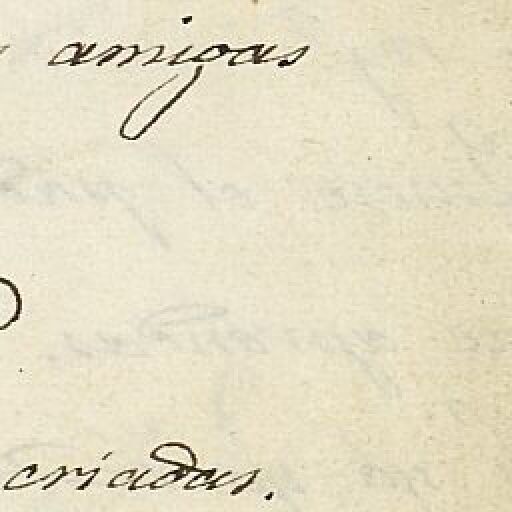 amigas
criadas.